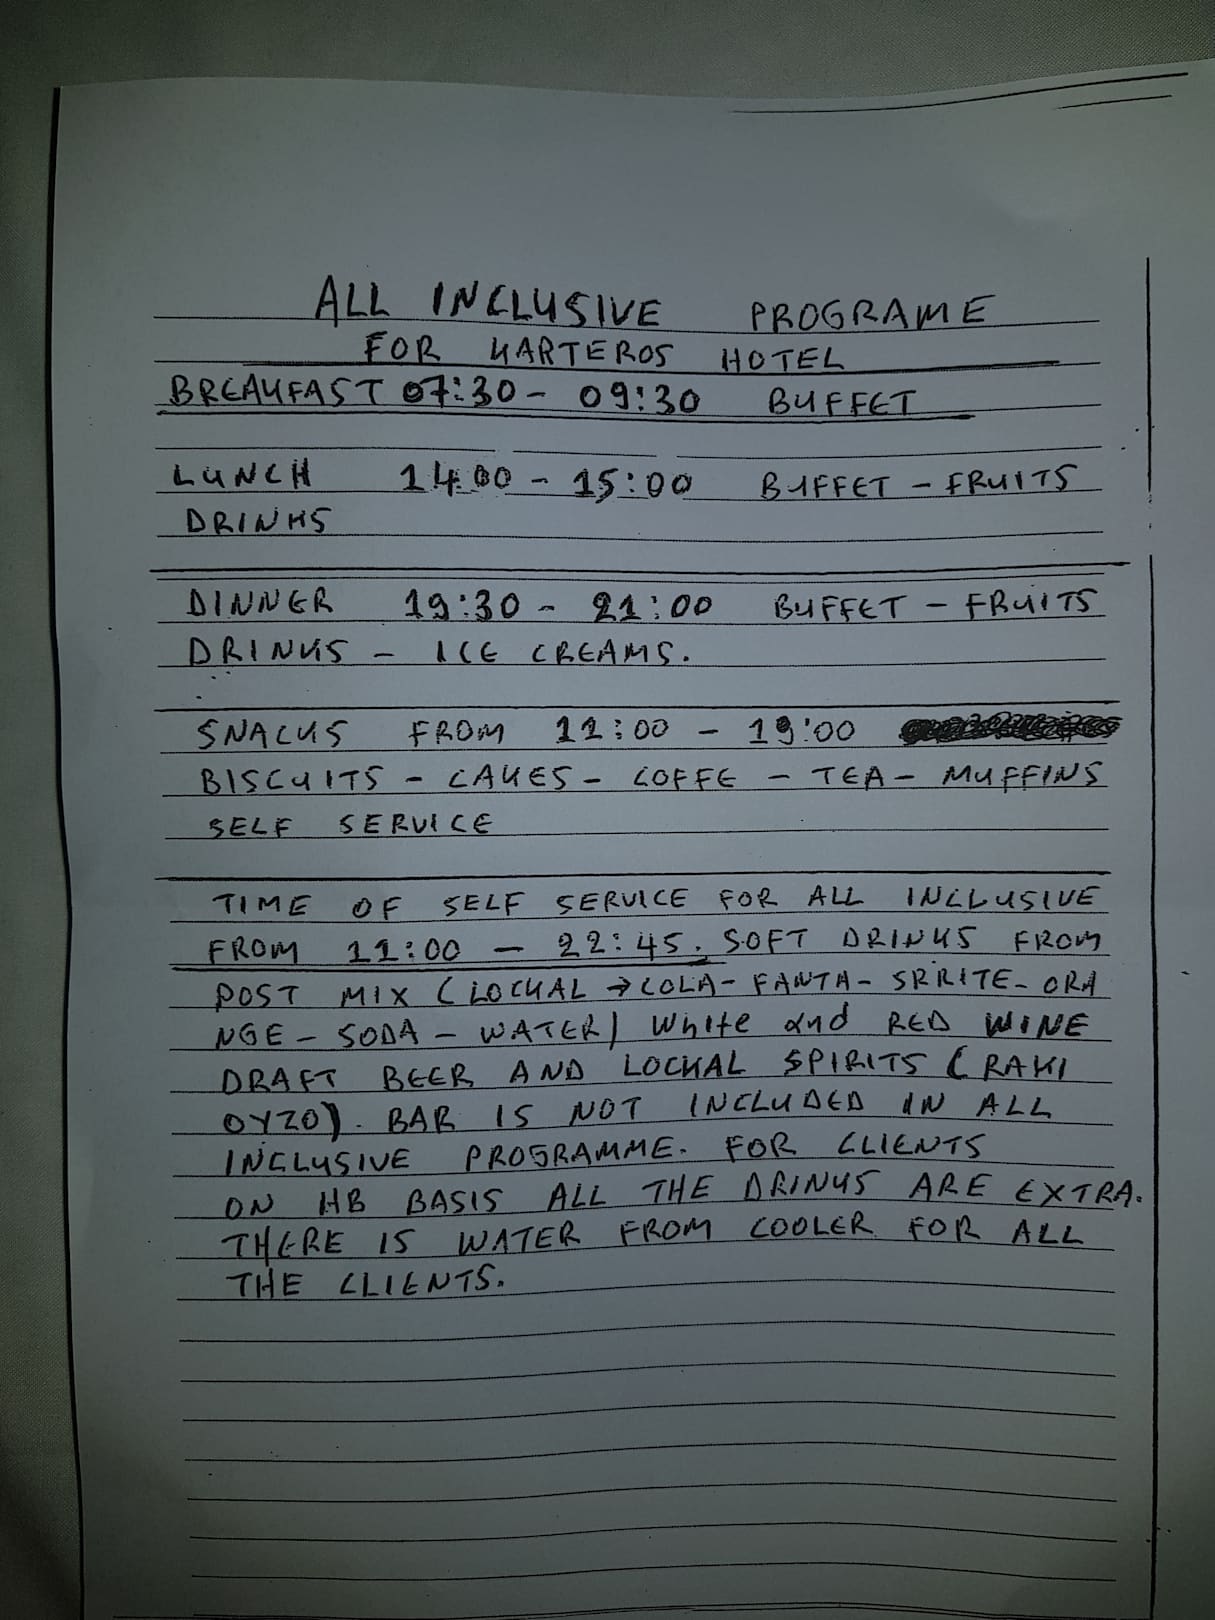 ALL INCLUSIVE PROGRAME
FOR KARTEROS HOTEL
BREAKFAST 07:30 - 09:30 BUFFET
LUNCH 14:00 - 15:00 BUFFET - FRUITS
DRINKS
DINNER 19:30 - 21:00 BUFFET - FRUITS
DRINKS - ICE CREAMS.
SNACKS FROM 11:00 - 19:00
BISCUITS - CAKES - COFFE - TEA - MUFFINS
SELF SERVICE
TIME OF SELF SERVICE FOR ALL INCLUSIVE
FROM 11:00 - 22:45. SOFT DRINKS FROM
POST MIX (LOCKAL → COLA - FANTA - SRRITE - ORA
NGE - SODA - WATER) White and RED WINE
DRAFT BEER AND LOCKAL SPIRITS (RAKI
OYZO). BAR IS NOT INCLUDED IN ALL
INCLUSIVE PROGRAMME. FOR CLIENTS
ON HB BASIS ALL THE DRINKS ARE EXTRA.
THERE IS WATER FROM COOLER FOR ALL
THE CLIENTS.